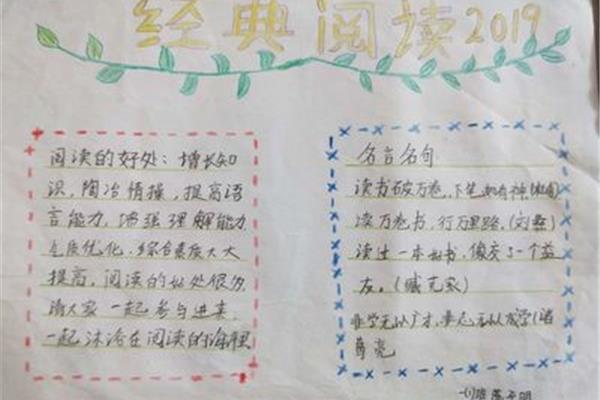 经典阅读2019
阅读的好处：增长知
识，陶冶情操，提高语
言能力，增强理解能力
气质优化，综合素质大大
提高，阅读的好处很多
请大家一起参与进来
一起沐浴在阅读的海洋
名言名句
读书破万卷，下笔如有神(杜甫)
读万卷书，行万里路，(刘彝)
读过一本好书，像交了一个益
友。(臧克家)
非学无以广才，非志无以成学(诸
葛亮